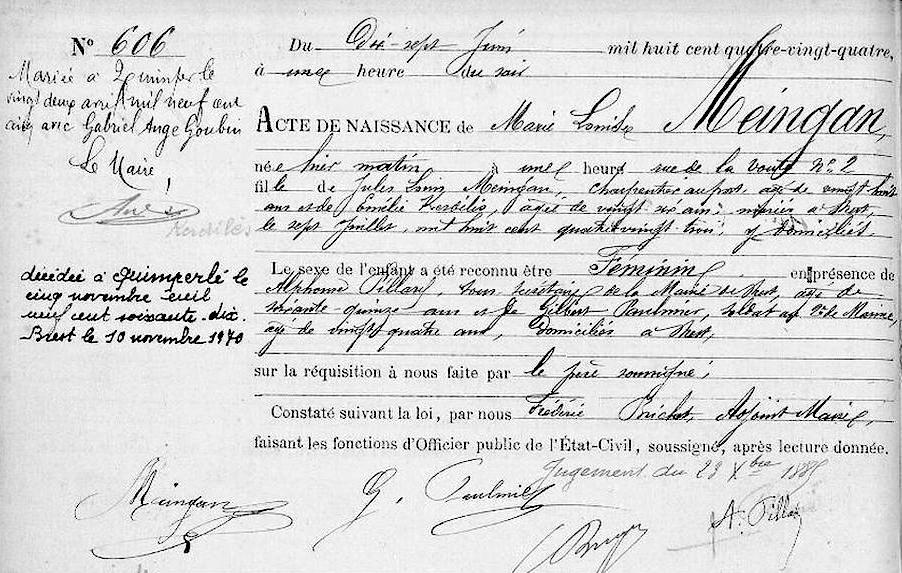 N° 606
Mariée à Quimper le
vingt deux avril mil neuf cent
cinq avec Gabriel Ange Goubin
Le Maire
Kerdilès
décédée à Quimperlé le
cinq novembre mil
neuf cent soixante-dix.
Brest le 10 novembre 1970
Du Dix-sept Juin mil huit cent quatre-vingt-quatre,
à une heure du soir
ACTE DE NAISSANCE de Marie Louise Meingan,
née hier matin à une heure rue de la Voute N° 2
fille de Jules Louis Meingan, charpentier au port, agé de vingt huit
ans et de Emélie Kerbilis, agée de vingt six ans; mariés à Brest,
le sept Juillet, mil huit cent quatre vingt trois, y domiciliés.
Le sexe de l'enfant a été reconnu être Féminin en présence de
Alphonse Pillard, sous secrétaire de la Mairie de Brest, agé de
soixante quinze ans et de Gilbert Paulmier, soldat au 2e de Marine,
agé de vingt quatre ans, domiciliés à Brest,
sur la réquisition à nous faite par le père soussigné;
Constaté suivant la loi, par nous Frédéric Adjoint Maire,
faisant les fonctions d'Officier public de l'État-Civil, soussigné, après lecture donnée.
Jugement du 23 Xbre 1885
Meingan G. Paulmier A. Pillard